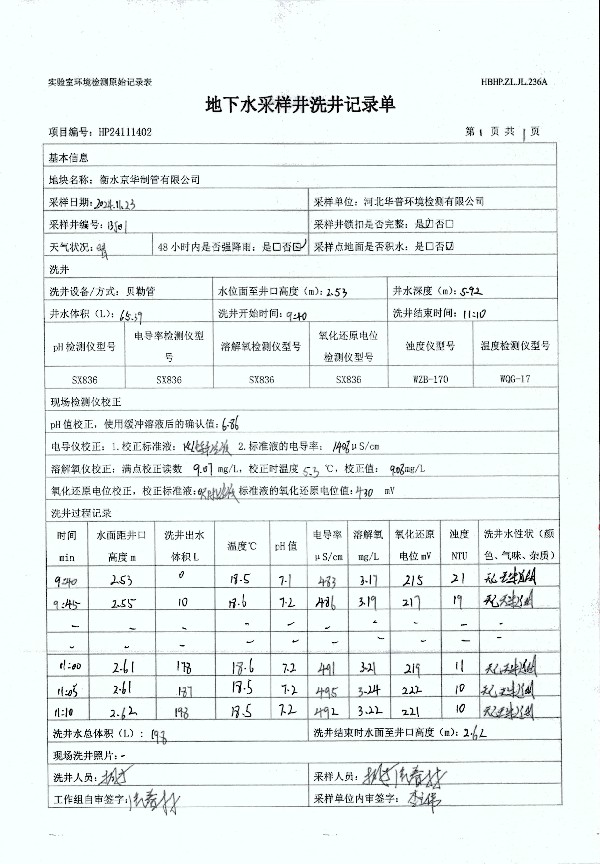 实验室环境检测原始记录表 HBHP.ZL.JL.236A
地下水采样井洗井记录单
项目编号: HP24111402 第1页 共1页
基本信息
地块名称: 衡水京华制管有限公司
采样日期: 2024.11.23 采样单位: 河北华普环境检测有限公司
采样井编号: 采样井锁扣是否完整: 是☑否□
天气状况: 48小时内是否强降雨: 是□否☑ 采样点地面是否积水: 是□否☑
洗井
洗井设备/方式: 贝勒管 水位面至井口高度(m): 2.53 井水深度(m): 5.92
井水体积(L): 65.39 洗井开始时间: 9:40 洗井结束时间: 11:10
pH检测仪型号 电导率检测仪型号 溶解氧检测仪型号 氧化还原电位检测仪型号 浊度仪型号 温度检测仪型号
SX836 SX836 SX836 SX836 WZB-170 WQG-17
现场检测仪校正
pH值校正, 使用缓冲溶液后的确认值: 6.86
电导仪校正: 1.校正标准液: 2.标准液的电导率: 1408μS/cm
溶解氧仪校正: 满点校正读数 9.07 mg/L, 校正时温度 5.3 ℃, 校正值: 9.08mg/L
氧化还原电位校正, 校正标准液: 标准液的氧化还原电位值: 430 mV
洗井过程记录
时间min 水面距井口高度m 洗井出水体积L 温度℃ pH值 电导率μS/cm 溶解氧mg/L 氧化还原电位mV 浊度NTU 洗井水性状(颜色、气味、杂质)
9:40 2.53 0 18.5 7.1 483 3.17 215 21
9:45 2.55 10 18.6 7.2 486 3.19 217 19
- - - - - - - - - -
- - - - - - - - - -
11:00 2.61 178 18.6 7.2 491 3.21 219 11
11:05 2.61 187 18.5 7.2 495 3.24 222 10
11:10 2.62 198 18.5 7.2 492 3.22 221 10
洗井水总体积(L): 198 洗井结束时水面至井口高度(m): 2.62
现场洗井照片: -
洗井人员: 采样人员:
工作组自审签字: 采样单位内审签字: